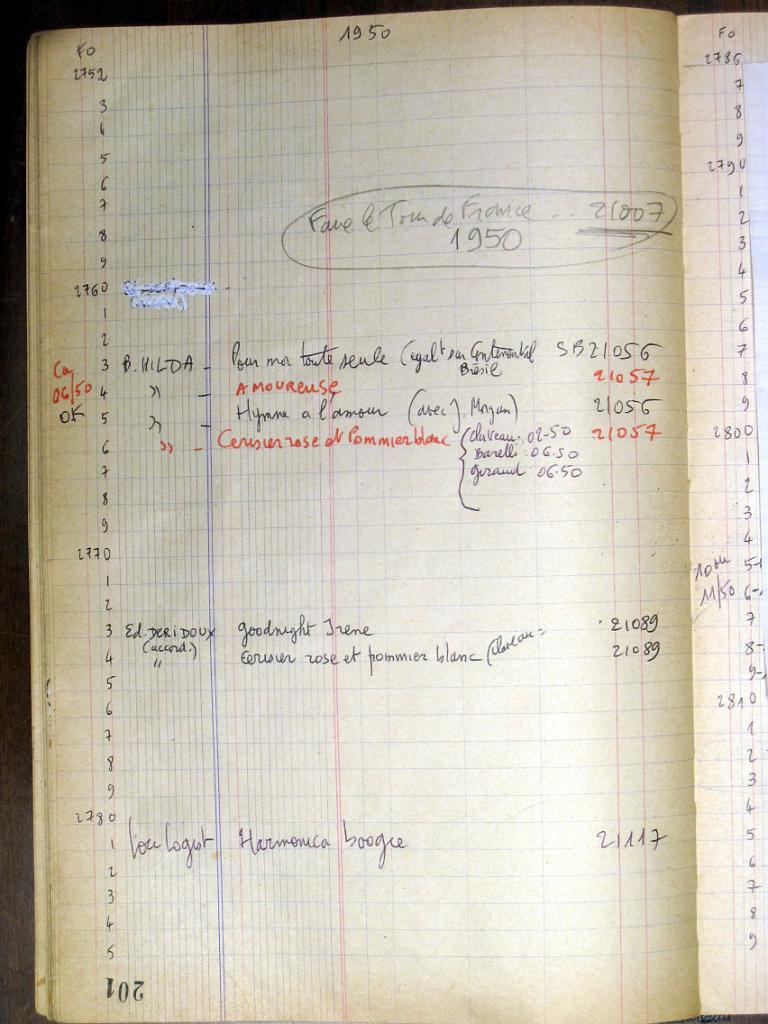 1950
Fo
2752
3
4
5
6
7
8
9
Faire le Tour de France .. 21007
1950
2760
1
2
3 B. HILDA - Pour moi toute seule (egalt sur Continental SB 21056
Brésil
Ca
06/50
OK
4 " - AMOUREUSE 21057
5 " - Hymne a l'amour (avec J. Morgan) 21056
6 " - Cerisier rose et Pommier blanc (Claveau. 02-50 21057
Barelli: 06-50
7 Giraud: 06.50
8
9
2770
1
2
3 Ed. DERIDOUX goodnight Irene 21089
(accord.)
4 " Cerisier rose et pommier blanc (Claveau = 21089
5
6
7
8
9
2780
1 Lou Logist Harmonica boogie 21117
2
3
4
5
201
Fo
2786
7
8
9
2790
1
2
3
4
5
6
7
8
9
2800
1
2
3
4
10 ou 5-
11/50 6-
7
8-
9-
2810
1
2
3
4
5
6
7
8
9